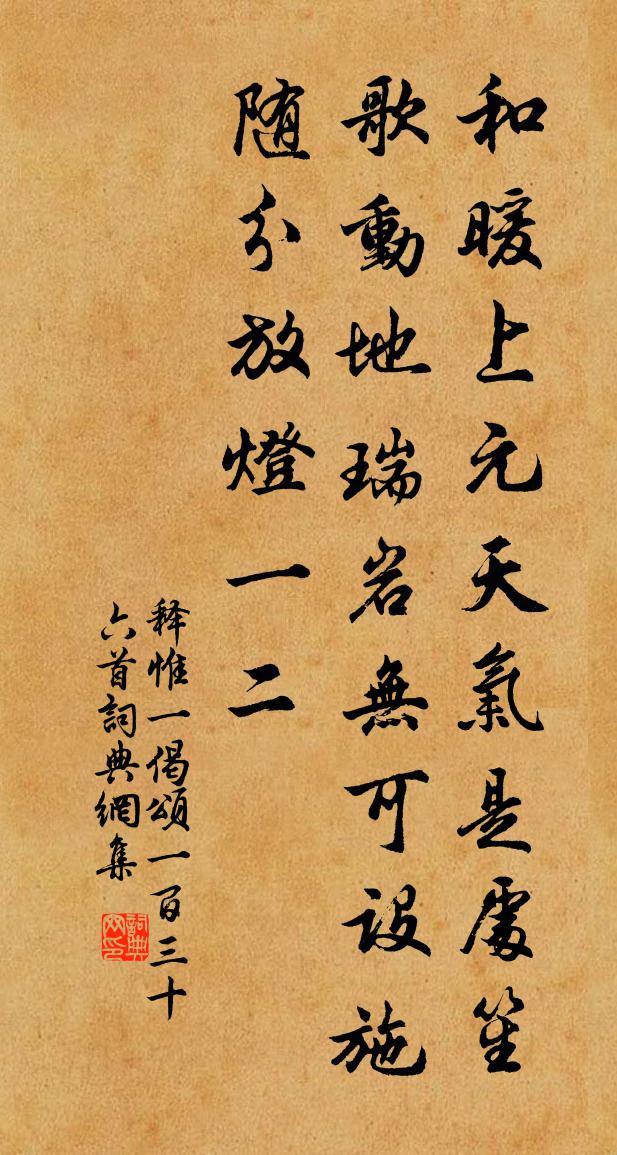 和暖上元天氣是處笙
歌動地瑞岩無可設施
随分放燈一二
释惟一偈頌一百三十
六首詞典網集
詞典網印